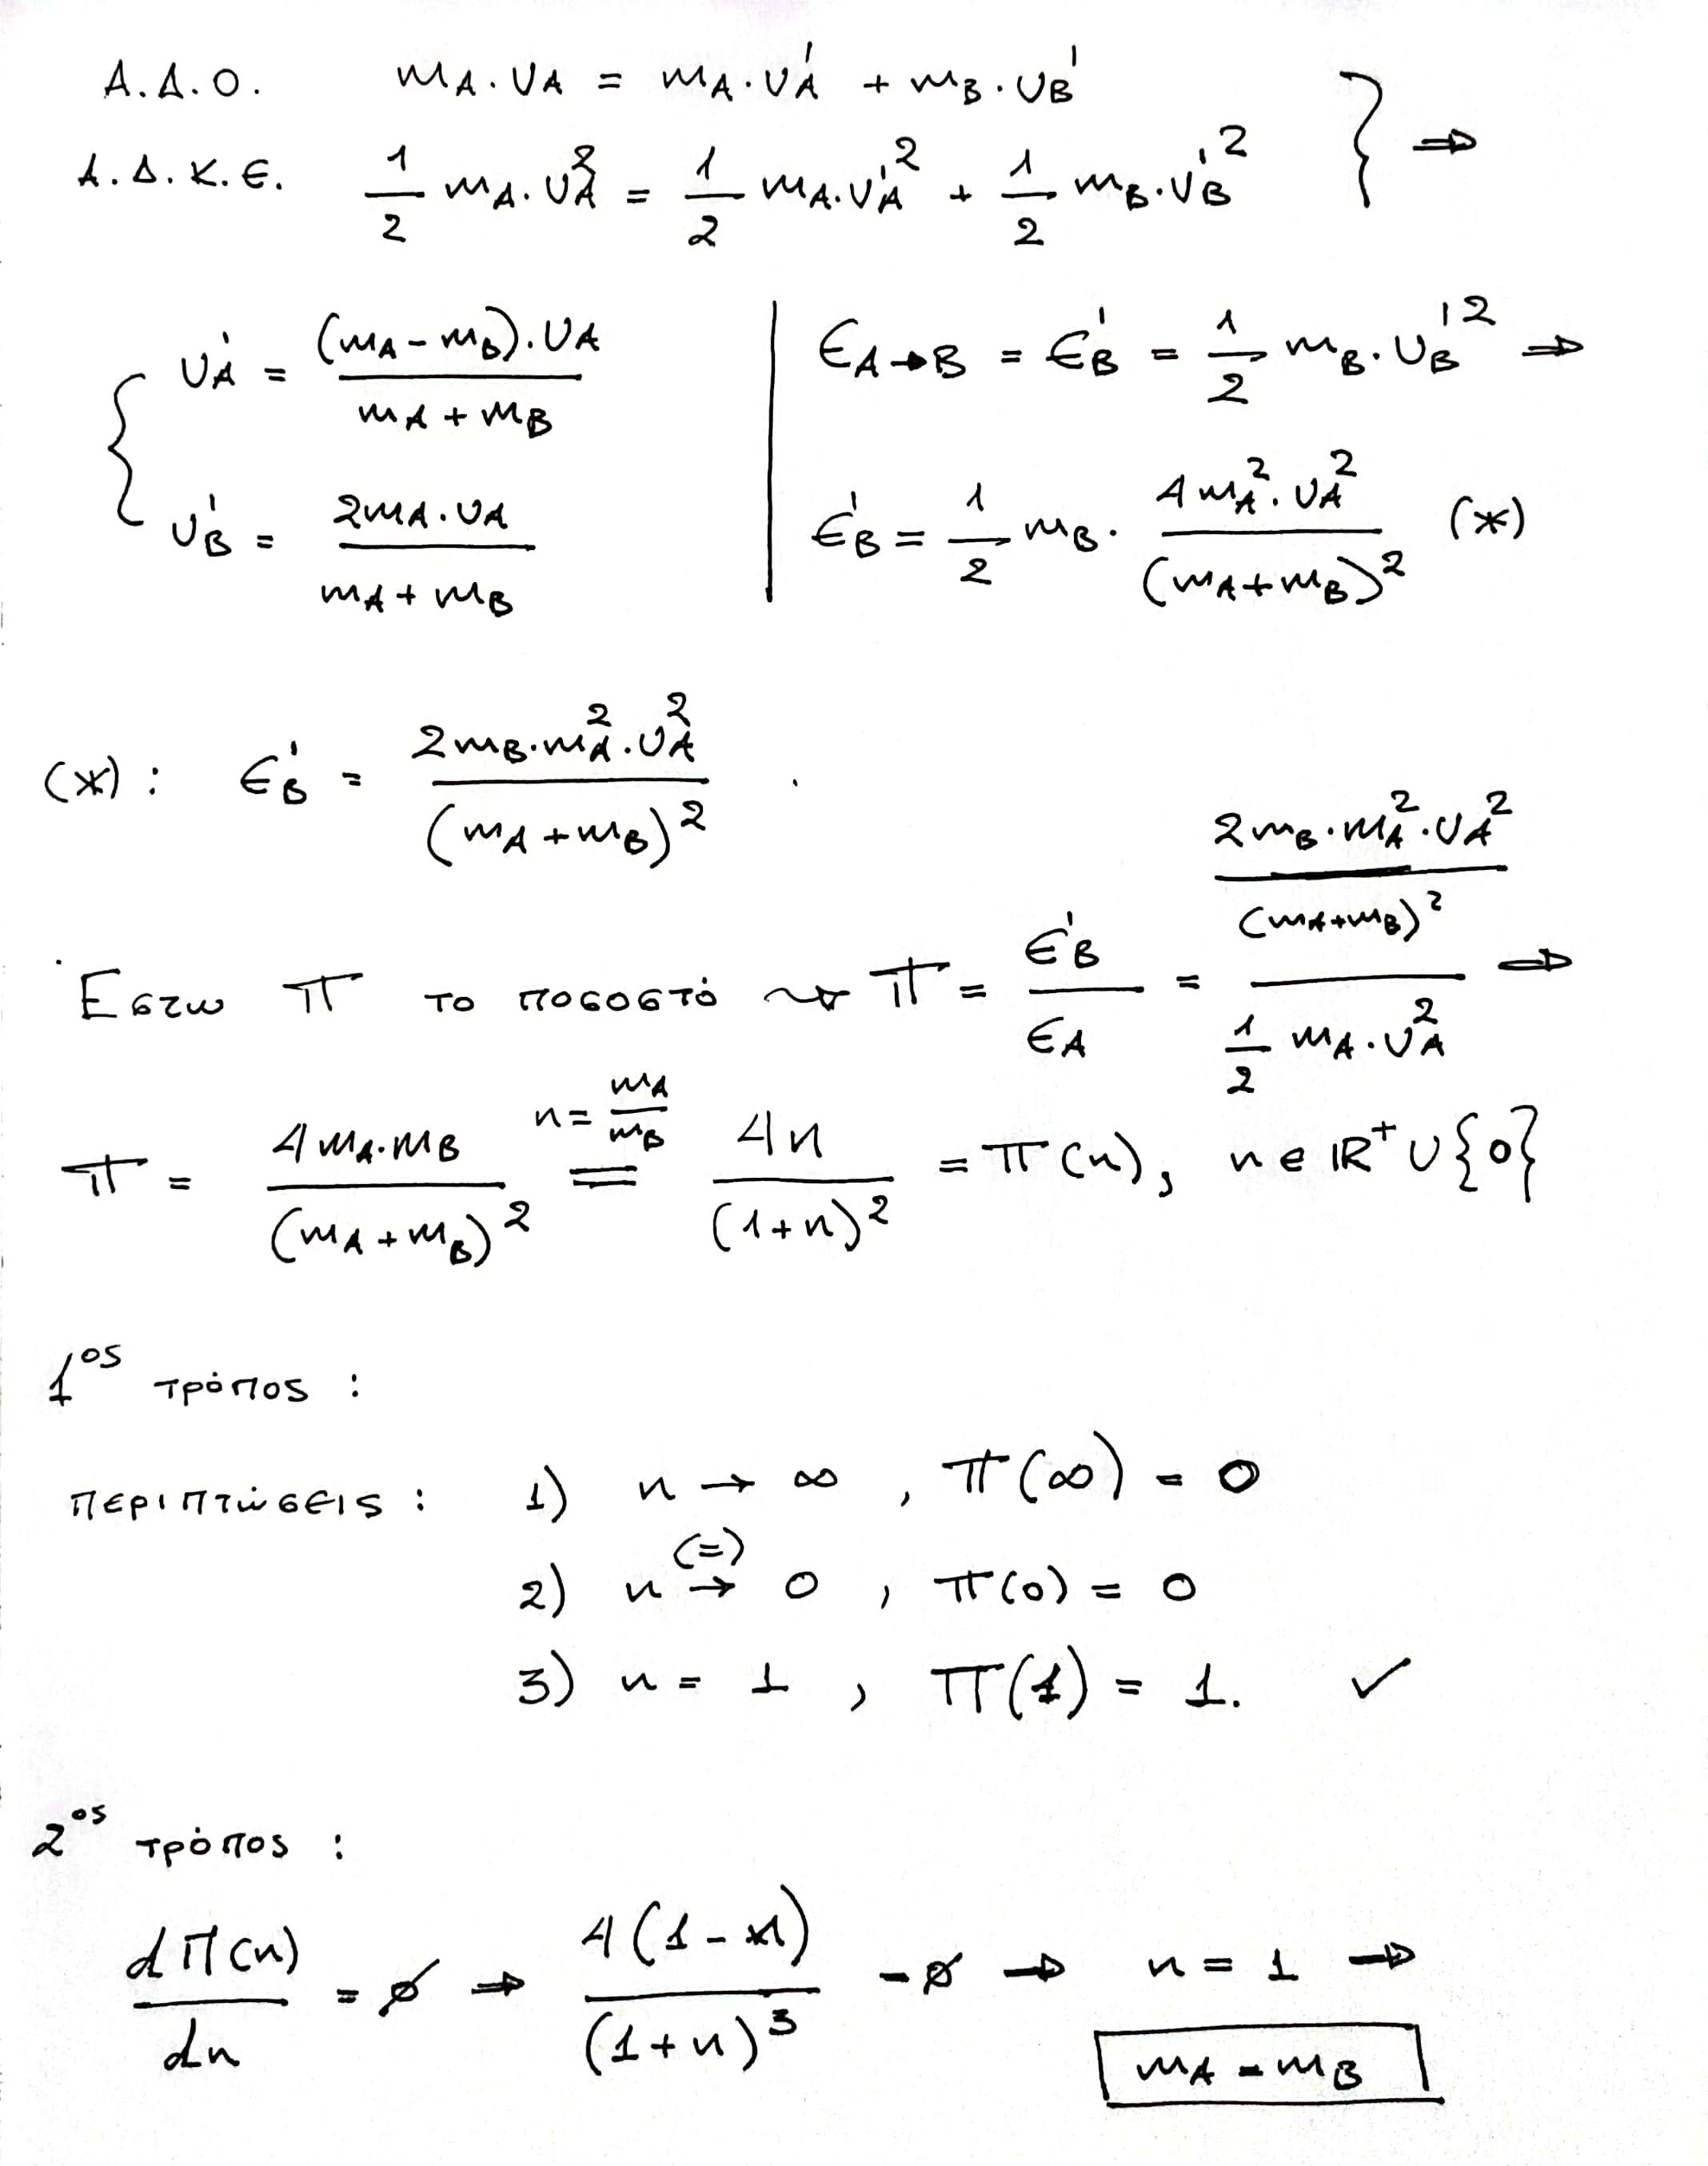 Α.Δ.Ο. mA·υA = mA·υA' + mB·υB' } ⇒
Α.Δ.Κ.Ε. 1/2 mA·υA² = 1/2 mA·υA'² + 1/2 mB·υB'²
{ υA' = (mA-mB)·υA / (mA+mB)
υB' = 2mA·υA / (mA+mB)
ЄA→B = ЄB' = 1/2 mB·υB'² ⇒
ЄB' = 1/2 mB· 4mA²·υA² / (mA+mB)² (*)
(*): ЄB' = 2mB·mA²·υA² / (mA+mB)² .
Εστω π το ποσοστό ⇝ π = ЄB' / ЄA = (2mB·mA²·υA² / (mA+mB)²) / (1/2 mA·υA²) ⇒
π = 4mA·mB / (mA+mB)² =(n = mA/mB)= 4n / (1+n)² = π(n), n ∈ ℝ⁺ ∪ {0}
1ος τρόπος :
περιπτώσεις : 1) n → ∞ , π(∞) = 0
2) n →(=) 0 , π(0) = 0
3) n = 1 , π(1) = 1. ✓
2ος τρόπος :
dΠ(n) / dn = ∅ ⇒ 4(1-n) / (1+n)³ = ∅ ⇒ n = 1 ⇒
mA = mB